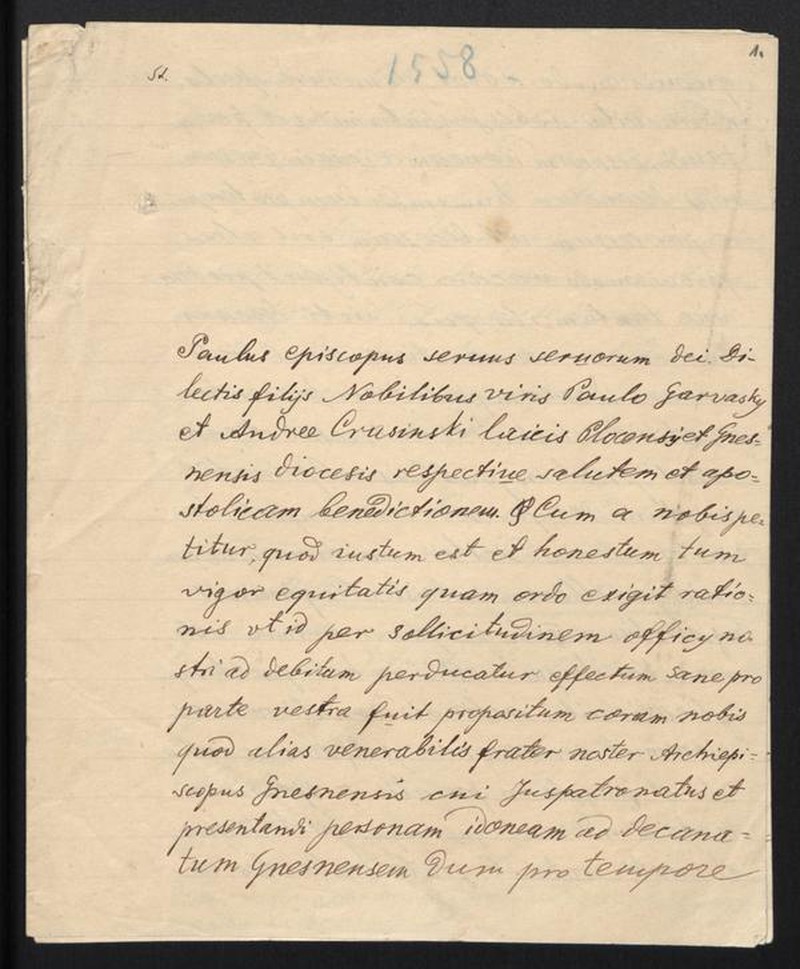 1.
St.
1558
Paulus episcopus seruus seruorum dei. Di-
lectis filijs Nobilibus viris Paulo Garvasky
et Andree Crusinski laicis Plocensis et Gnes-
nensis diocesis respectiue salutem et apo-
stolicam benedictionem. Cum a nobis pe-
titur, quod iustum est et honestum tum
vigor equitatis quam ordo exigit ratio-
nis vt id per sollicitudinem officy no-
stri ad debitum perducatur effectum Sane pro
parte vestra fuit propositum coram nobis
quod alias venerabilis frater noster Archiepi-
scopus Gnesnensis cui Juspatronatus et
presentandi personam idoneam ad decana-
tum Gnesnensem Dum pro tempore